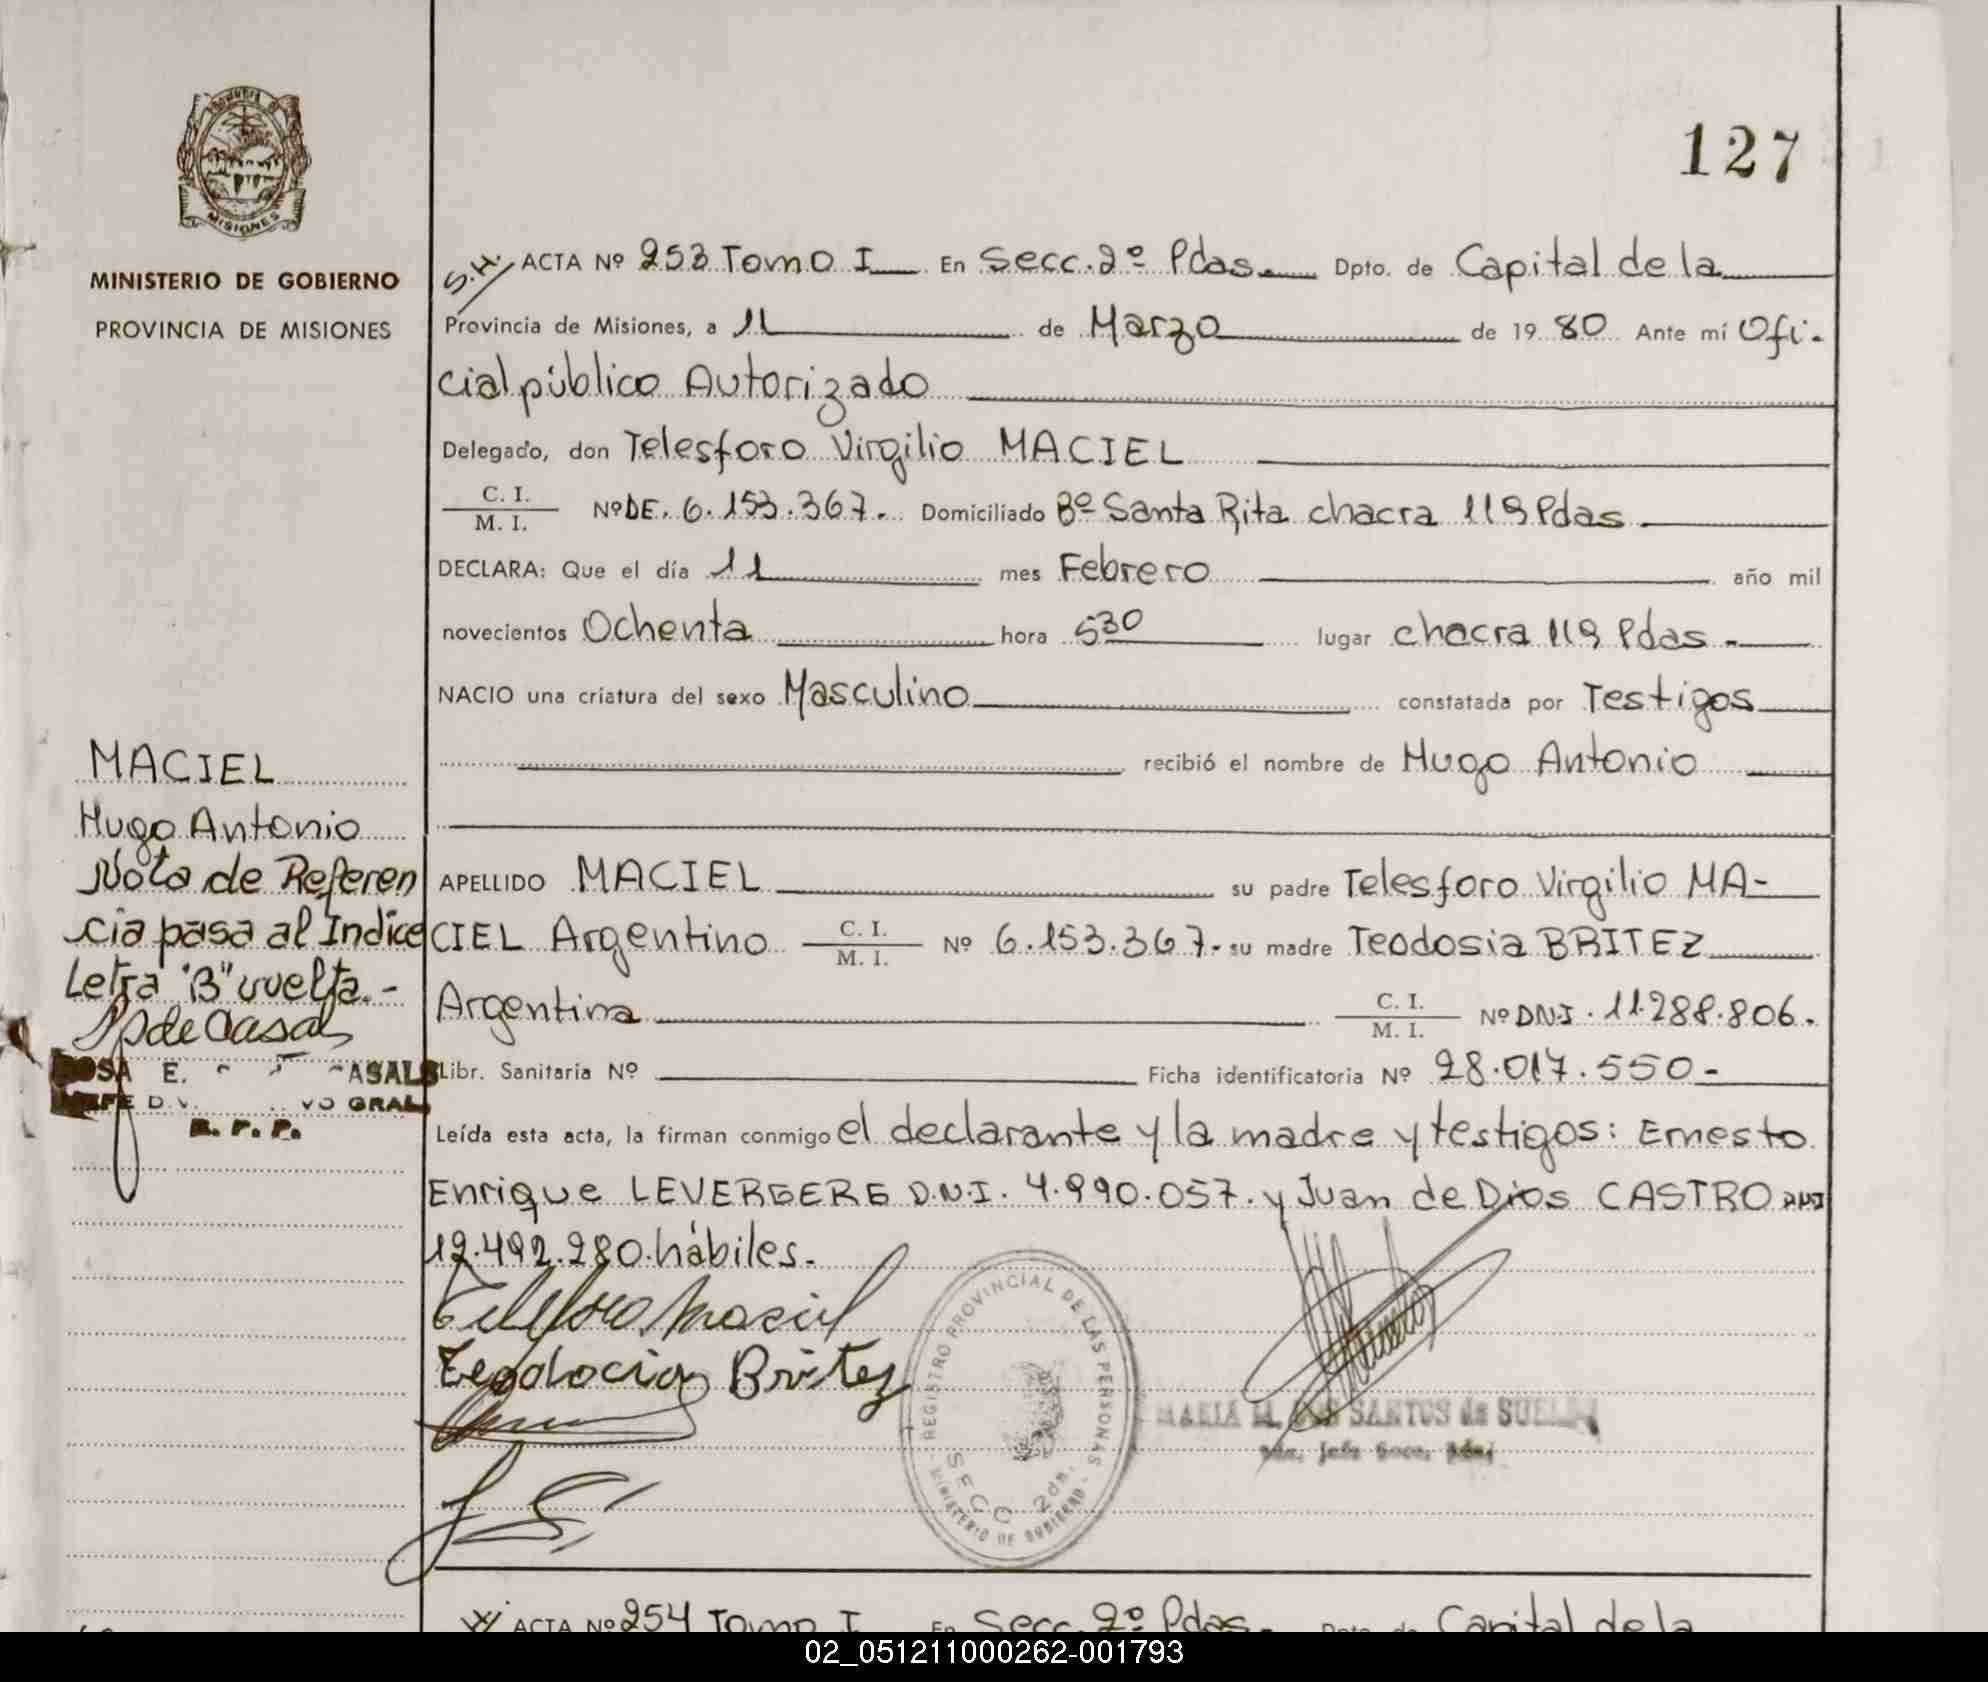 127
PROVINCIA DE
MISIONES
MINISTERIO DE GOBIERNO
PROVINCIA DE MISIONES
S.H. ACTA Nº 253 Tomo I En Secc. 2º Pdas. Dpto. de Capital de la
Provincia de Misiones, a 11 de Marzo de 1980 Ante mí Ofi-
cial público Autorizado
Delegado, don Telesforo Virgilio MACIEL
C. I.
M. I. Nº DE. 6.153.367. Domiciliado Bº Santa Rita chacra 119 Pdas.
DECLARA: Que el día 11 mes Febrero año mil
novecientos Ochenta hora 5 30 lugar chacra 119 Pdas.-
NACIO una criatura del sexo Masculino constatada por Testigos
recibió el nombre de Hugo Antonio
MACIEL
Hugo Antonio
Nota de Referen
cia pasa al Indice
Letra "B" vuelta.-
ROSA E. CASALS
GRAL.
R. P. P.
APELLIDO MACIEL su padre Telesforo Virgilio MA-
CIEL Argentino C. I.
M. I. Nº 6.153.367. su madre Teodosia BRITEZ
Argentina C. I.
M. I. Nº DNI. 11.288.806.
Libr. Sanitaria Nº Ficha identificatoria Nº 28.017.550-
Leída esta acta, la firman conmigo el declarante y la madre y testigos: Ernesto
Enrique D.N.I. 4.990.057. y Juan de Dios CASTRO DNI
12.492.280. hábiles.-
Telesforo Maciel
Teodocia Britez
REGISTRO PROVINCIAL DE LAS PERSONAS
SECC 2da.
MINISTERIO DE GOBIERNO
MARIA M. DOS SANTOS de
Jefe Secc. 2da.
ACTA Nº 254 Tomo I En Secc. 2º Pdas. Dpto. de Capital de la
02_051211000262-001793